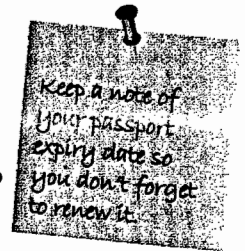 Keep a note of
your passport
expiry date so
you don't forget
to renew it.